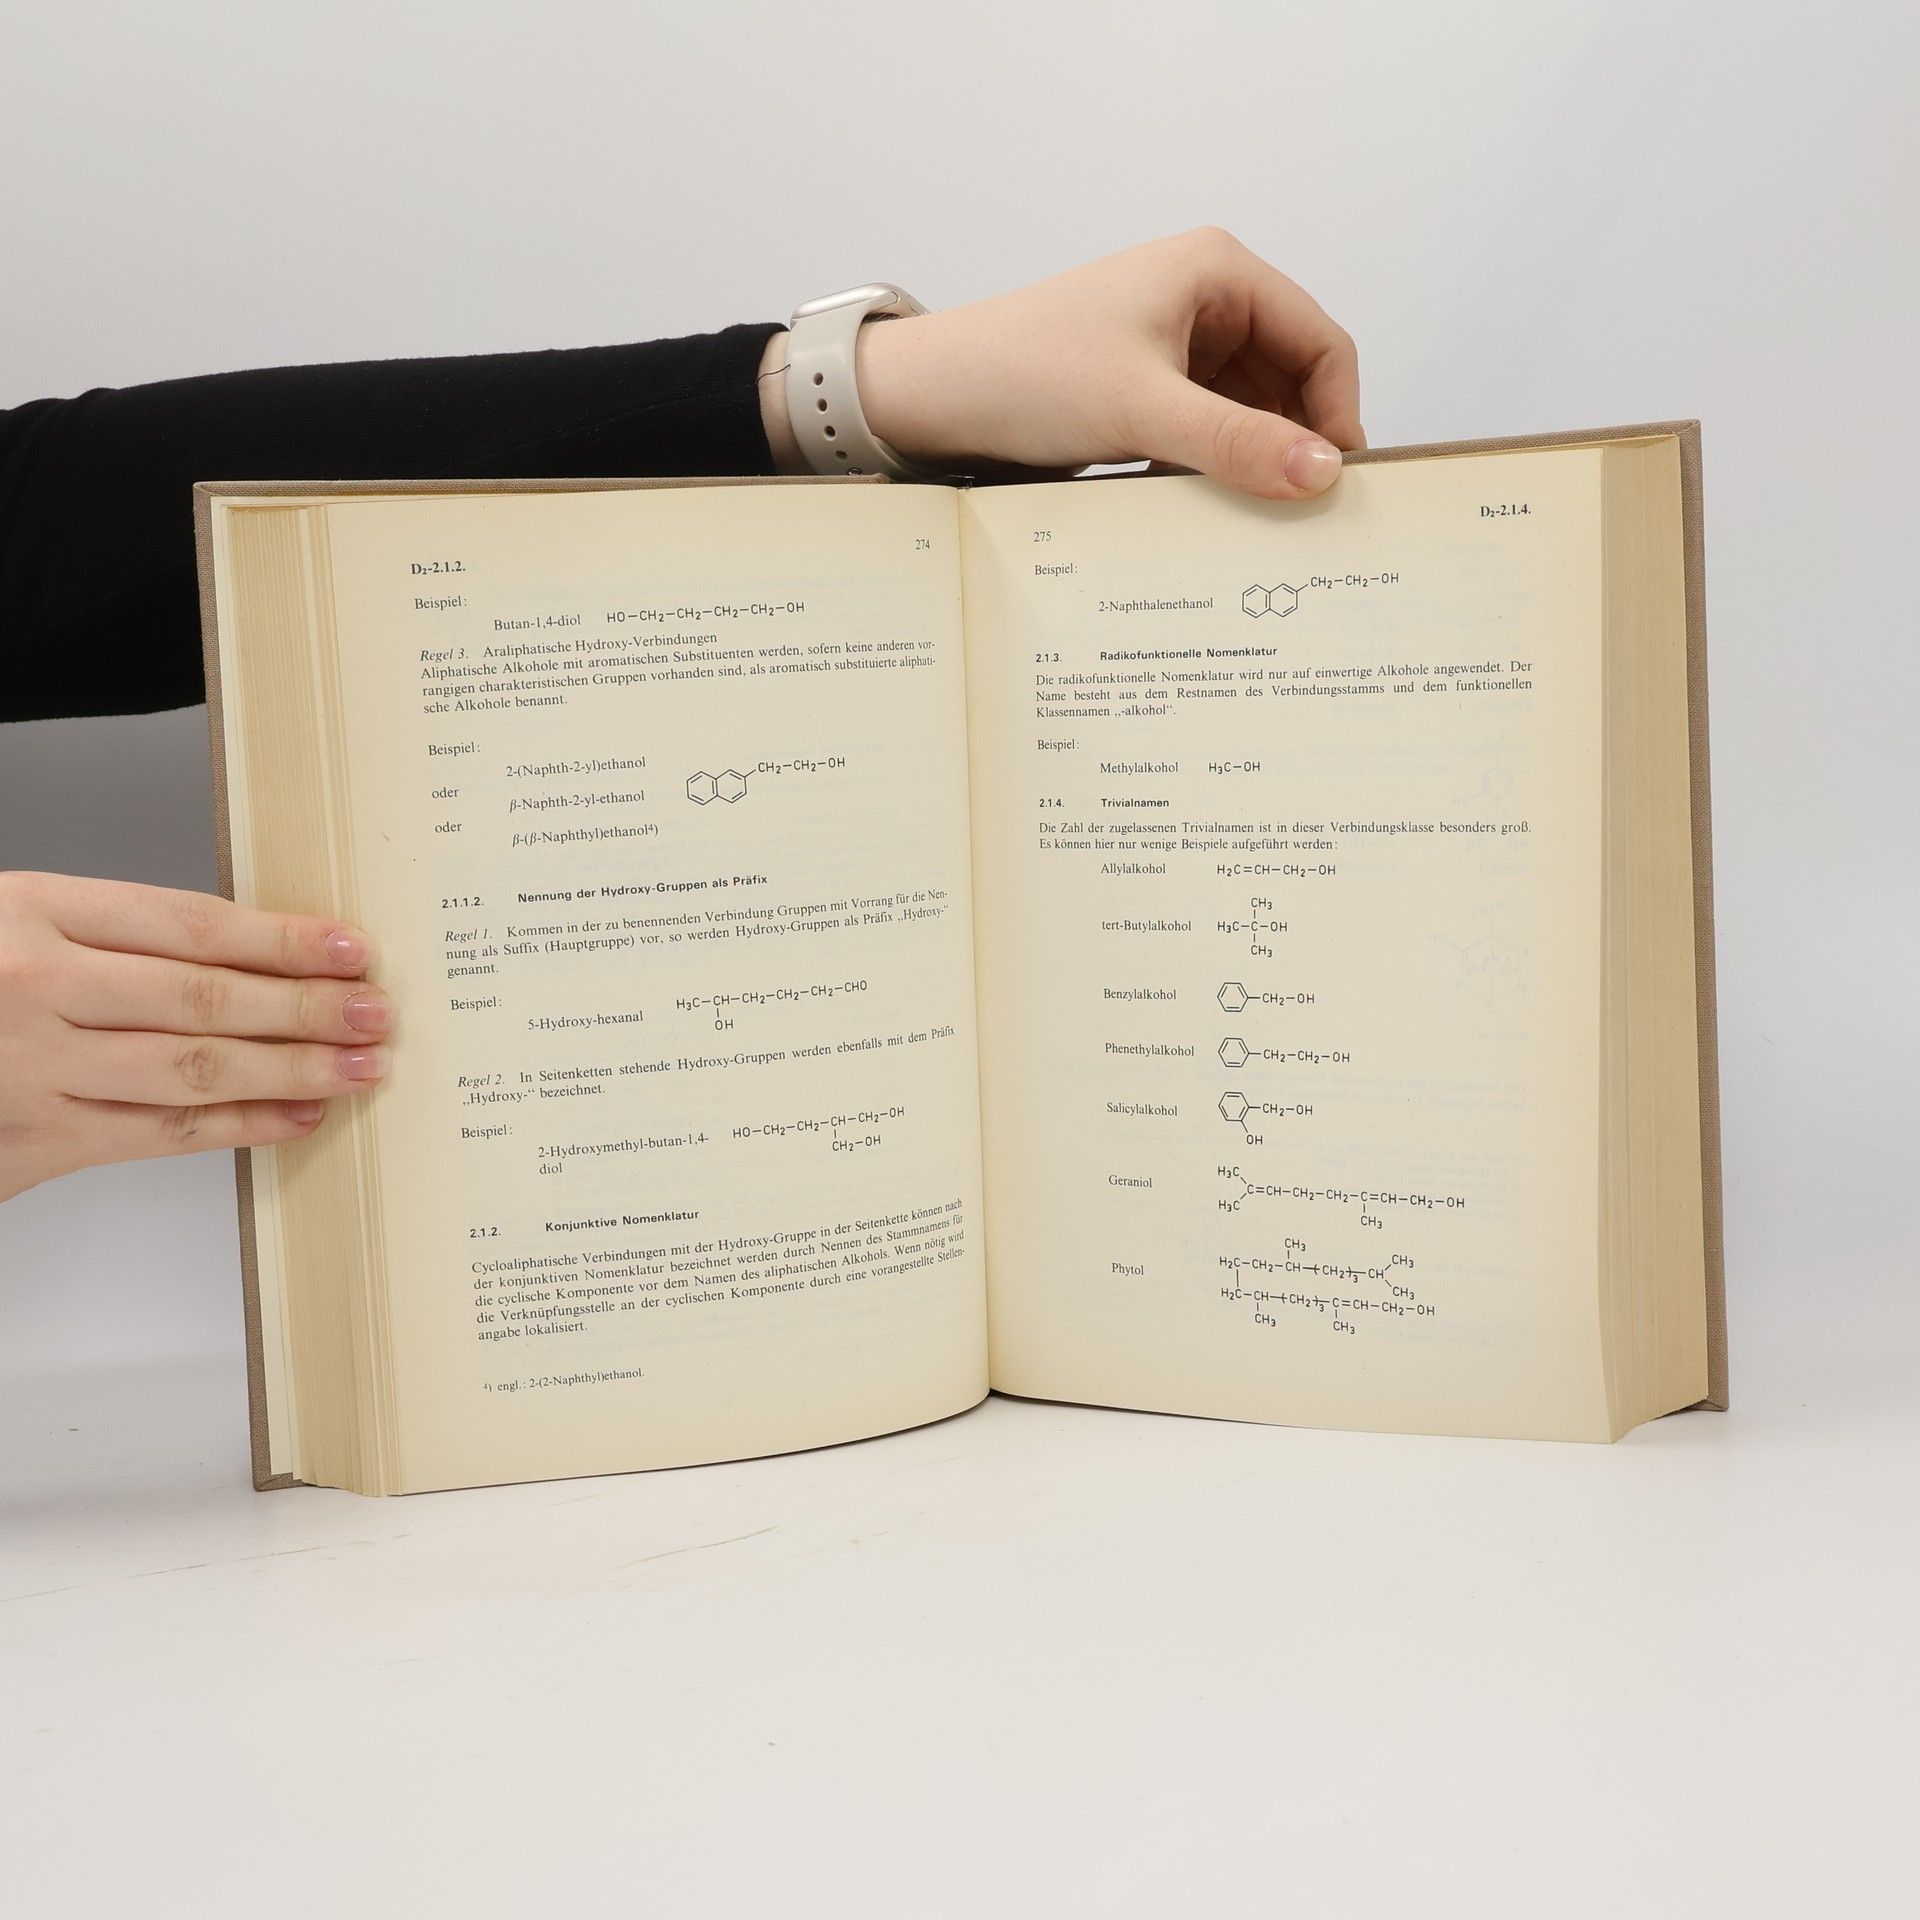 D₂-2.1.2.
274
Beispiel:
Butan-1,4-diol HO−CH₂−CH₂−CH₂−CH₂−OH
Regel 3. Araliphatische Hydroxy-Verbindungen
Aliphatische Alkohole mit aromatischen Substituenten werden, sofern keine anderen vor-
rangigen charakteristischen Gruppen vorhanden sind, als aromatisch substituierte aliphati-
sche Alkohole benannt.
Beispiel:
2-(Naphth-2-yl)ethanol CH₂−CH₂−OH
oder
β-Naphth-2-yl-ethanol
oder
β-(β-Naphthyl)ethanol⁴)
2.1.1.2. Nennung der Hydroxy-Gruppen als Präfix
Regel 1. Kommen in der zu benennenden Verbindung Gruppen mit Vorrang für die Nen-
nung als Suffix (Hauptgruppe) vor, so werden Hydroxy-Gruppen als Präfix „Hydroxy-“
genannt.
Beispiel:
5-Hydroxy-hexanal H₃C−CH−CH₂−CH₂−CH₂−CHO
OH
Regel 2. In Seitenketten stehende Hydroxy-Gruppen werden ebenfalls mit dem Präfix
„Hydroxy-“ bezeichnet.
Beispiel:
2-Hydroxymethyl-butan-1,4- HO−CH₂−CH₂−CH−CH₂−OH
diol CH₂−OH
2.1.2. Konjunktive Nomenklatur
Cycloaliphatische Verbindungen mit der Hydroxy-Gruppe in der Seitenkette können nach
der konjunktiven Nomenklatur bezeichnet werden durch Nennen des Stammnamens für
die cyclische Komponente vor dem Namen des aliphatischen Alkohols. Wenn nötig wird
die Verknüpfungsstelle an der cyclischen Komponente durch eine vorangestellte Stellen-
angabe lokalisiert.
⁴) engl.: 2-(2-Naphthyl)ethanol.
D₂-2.1.4.
275
Beispiel:
2-Naphthalenethanol CH₂−CH₂−OH
2.1.3. Radikofunktionelle Nomenklatur
Die radikofunktionelle Nomenklatur wird nur auf einwertige Alkohole angewendet. Der
Name besteht aus dem Restnamen des Verbindungsstamms und dem funktionellen
Klassennamen „-alkohol“.
Beispiel:
Methylalkohol H₃C−OH
2.1.4. Trivialnamen
Die Zahl der zugelassenen Trivialnamen ist in dieser Verbindungsklasse besonders groß.
Es können hier nur wenige Beispiele aufgeführt werden:
Allylalkohol H₂C=CH−CH₂−OH
CH₃
tert-Butylalkohol H₃C−C−OH
CH₃
Benzylalkohol CH₂−OH
Phenethylalkohol CH₂−CH₂−OH
Salicylalkohol CH₂−OH
OH
H₃C
Geraniol C=CH−CH₂−CH₂−C=CH−CH₂−OH
H₃C
CH₃
CH₃ CH₃
Phytol H₂C−CH₂−CH−(CH₂)₃−CH
CH₃
H₂C−CH−(CH₂)₃−C=CH−CH₂−OH
CH₃ CH₃